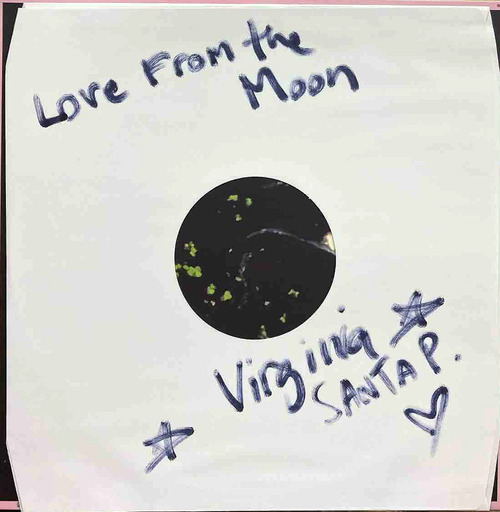 Love From the
Moon
Virginia
SANTA P.